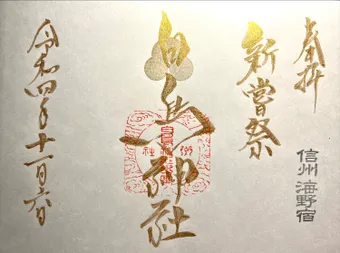 奉拝
新嘗祭
信州 海野宿
白鳥神社
令和四年十一月六日